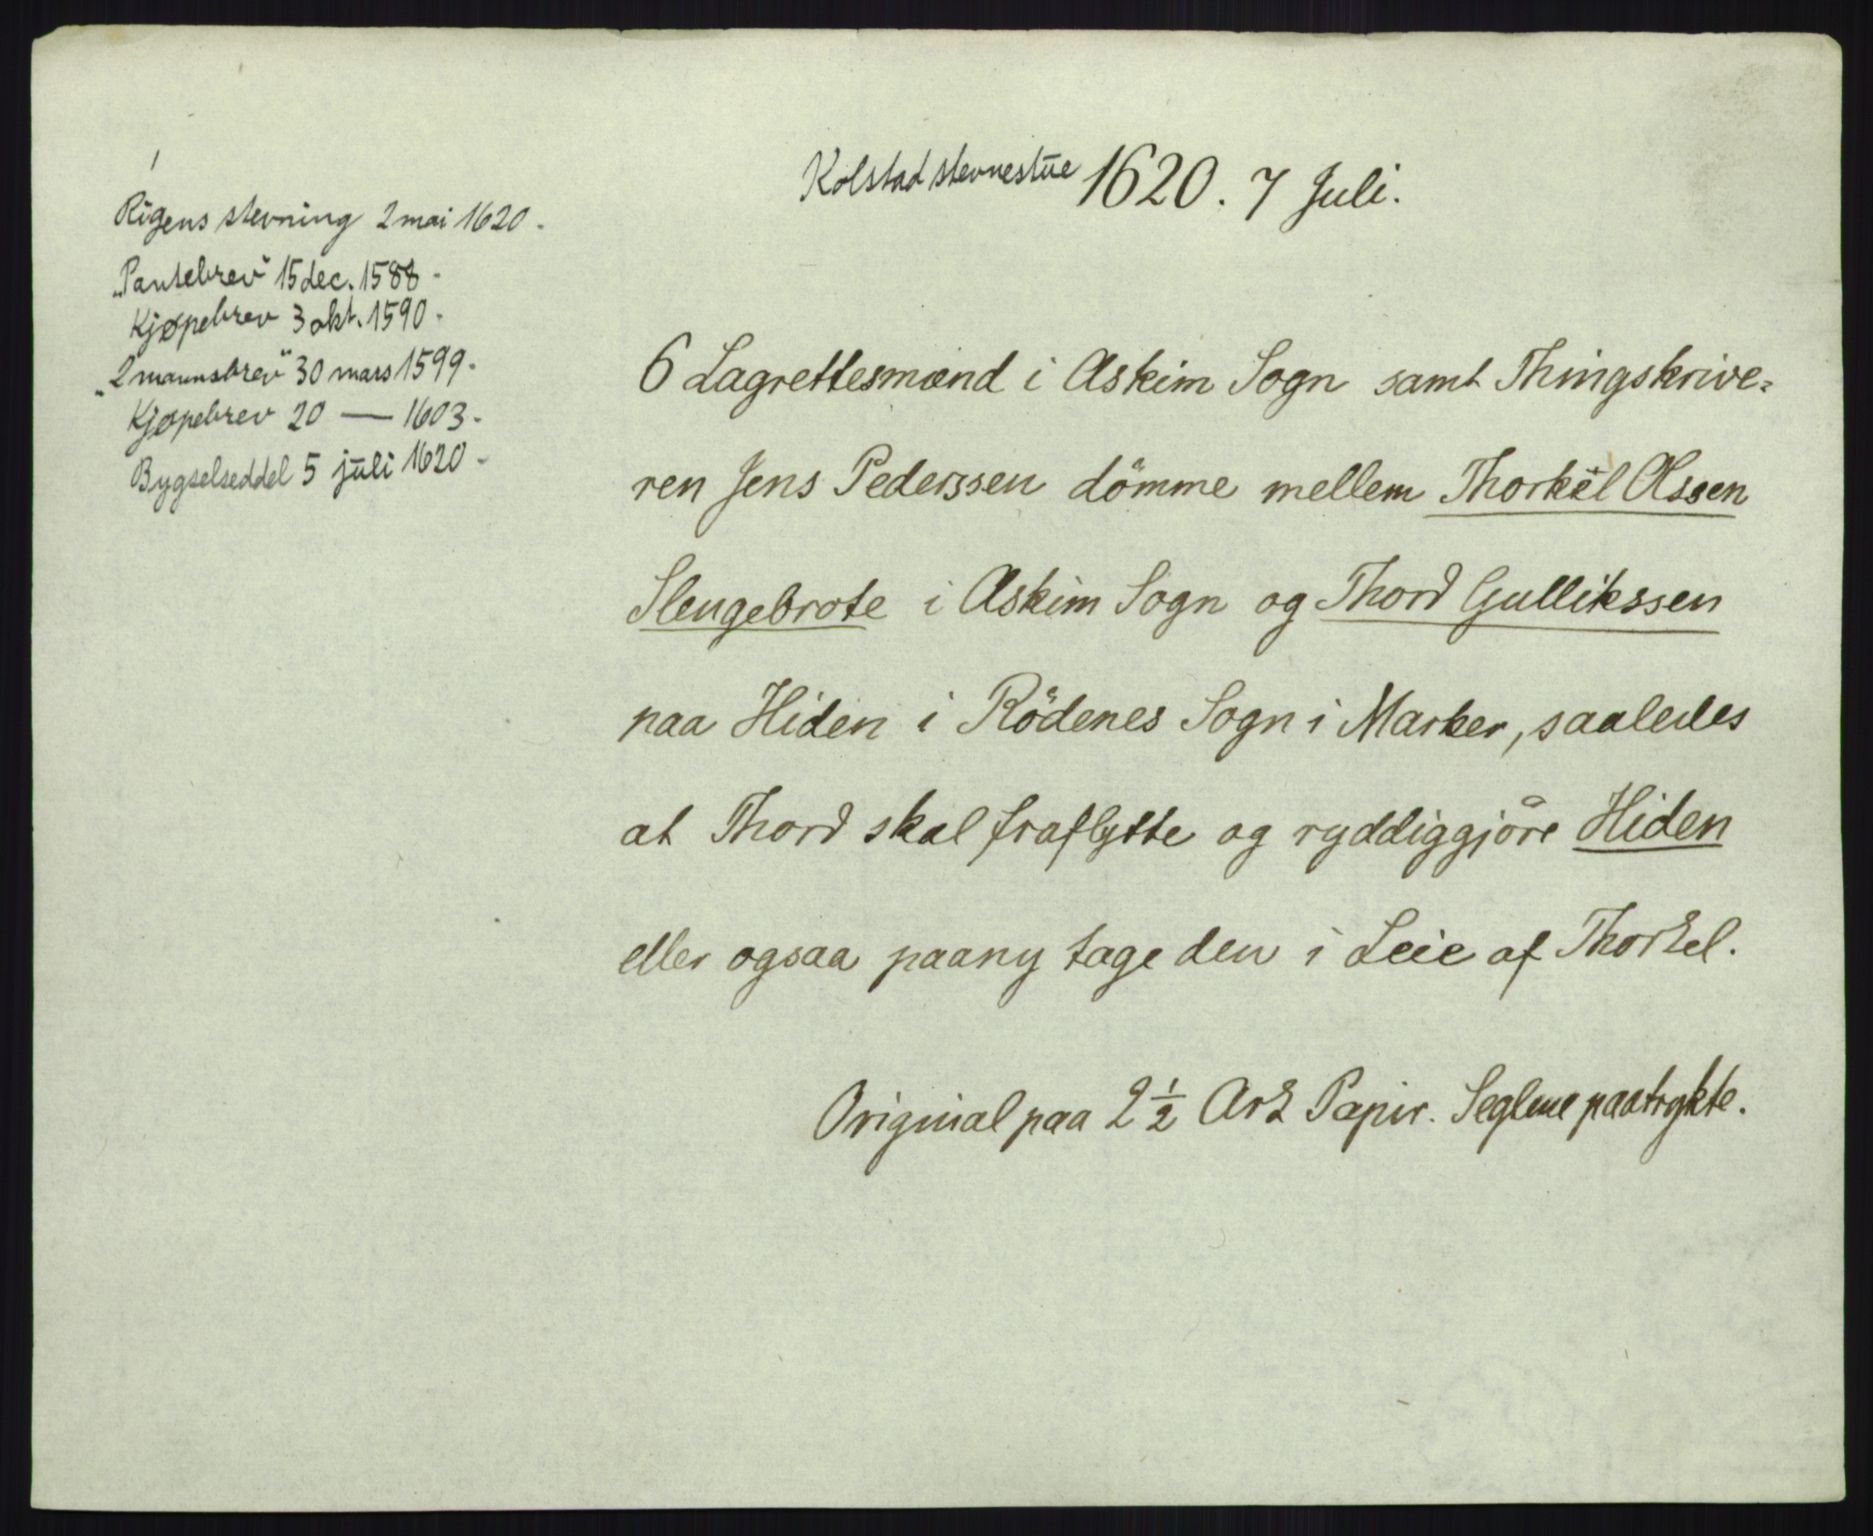 Kolstad stevnestue 1620. 7 Juli.
Rigens stevning 2 mai 1620.
"Pantebrev" 15 dec. 1588.
Kjøpebrev 3 okt. 1590.
"2 mannsbrev" 30 mars 1599.
Kjøpebrev 20 — 1603.
Bygselseddel 5 juli 1620.
6 Lagrettesmænd i Askim Sogn samt Thingskrive=
ren Jens Pederssen dömme mellem Thorkel Olssen
Slengebrote i Askim Sogn og Thord Gullikssen
paa Hiden i Rödenes Sogn i Marker, saaledes
at Thord skal fraflytte og ryddiggjöre Hiden
eller ogsaa paany tage den i Leie af Thorkel.
Original paa 2 1/2 Ark Papir. Seglene paatrykte.